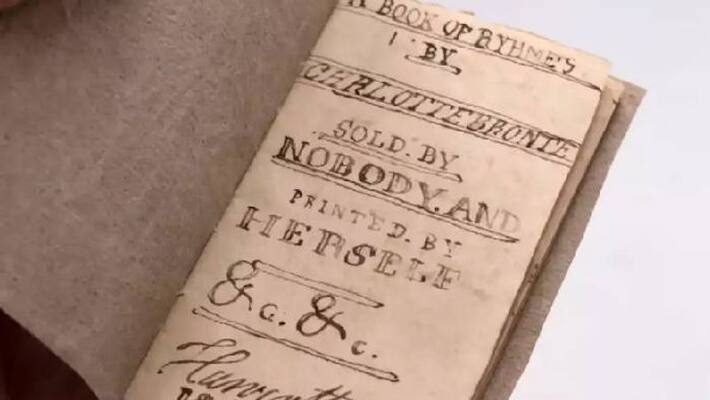 A BOOK OF RYHMES
BY
CHARLOTTE BRONTE
SOLD. BY
NOBODY. AND
PRINTED. BY
HERSELF
&c. &c.